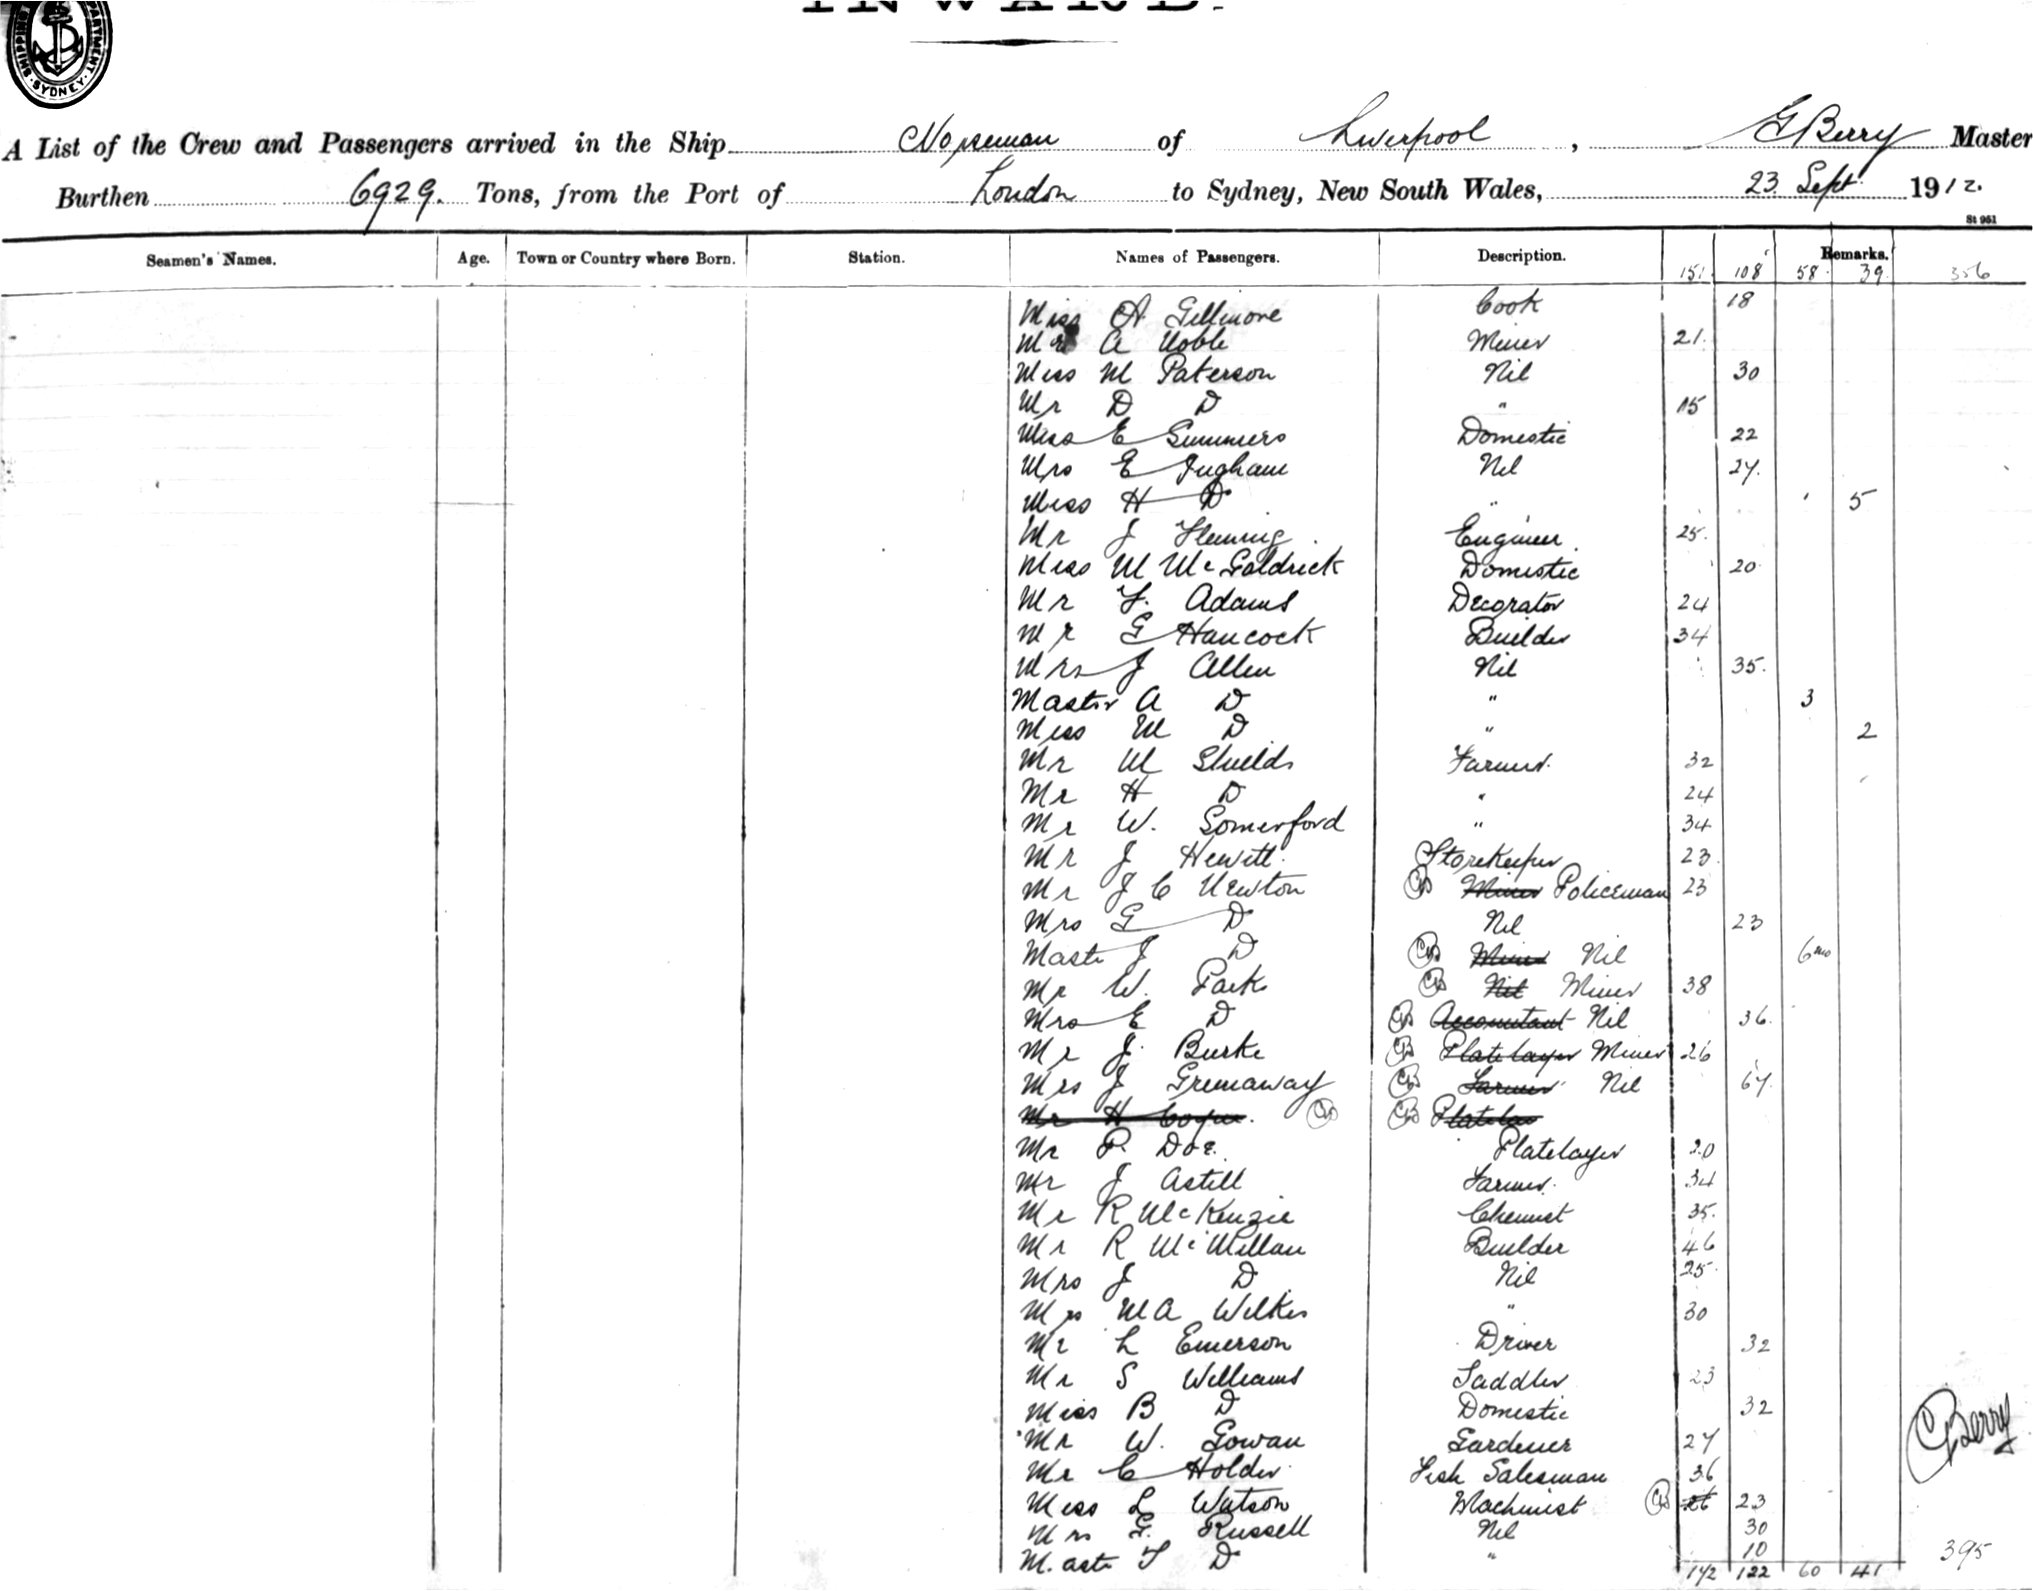 INWARD.
SHIPPING DEPARTMENT SYDNEY
A List of the Crew and Passengers arrived in the Ship Norseman of Liverpool, G Berry Master
Burthen 6929. Tons, from the Port of London to Sydney, New South Wales, 23 Sept 1912.
St 951
Seamen's Names. Age. Town or Country where Born. Station. Names of Passengers. Description. Remarks.
151 108 58 39 356
Miss A Gillmore Cook 18
Mr A Noble Miner 21
Miss M Paterson Nil 30
Mr D D " 15
Miss E Summers Domestic 22
Mrs E Ingham Nil 27
Miss H D " 5
Mr J Fleming Engineer 25
Miss M McGoldrick Domestic 20
Mr F. Adams Decorator 24
Mr G Hancock Builder 34
Mrs J Allen Nil 35
Master A D " 3
Miss M D " 2
Mr M Shields Farmer 32
Mr H D " 24
Mr W. Somerford " 34
Mr J Hewitt Storekeeper 23
Mr J C Newton Miner Policeman 23
Mrs G D Nil 23
Mastr J D Miner Nil 6mo
Mr W. Park Nil Miner 38
Mrs E D Accountant Nil 36
Mr J Burke Platelayer Miner 26
Mrs J Greenaway Farmer Nil 67
Mr H
Mr P. Doe Platelayer 20
Mr J Astill Farmer 34
Mr R McKenzie Chemist 35
Mr R McMillan Builder 46
Mrs J D Nil 25
Mrs M A Wilkes " 30
Mr L Emerson Driver 32
Mr S Williams Saddler 23
Miss B D Domestic 32
Mr W. Gowan Gardener 27
Mr C Holder Fish Salesman 36
Miss L Watson Machinist 26 23
Mrs G. Russell Nil 30
Mastr F D " 10
GBerry
395
172 122 60 41